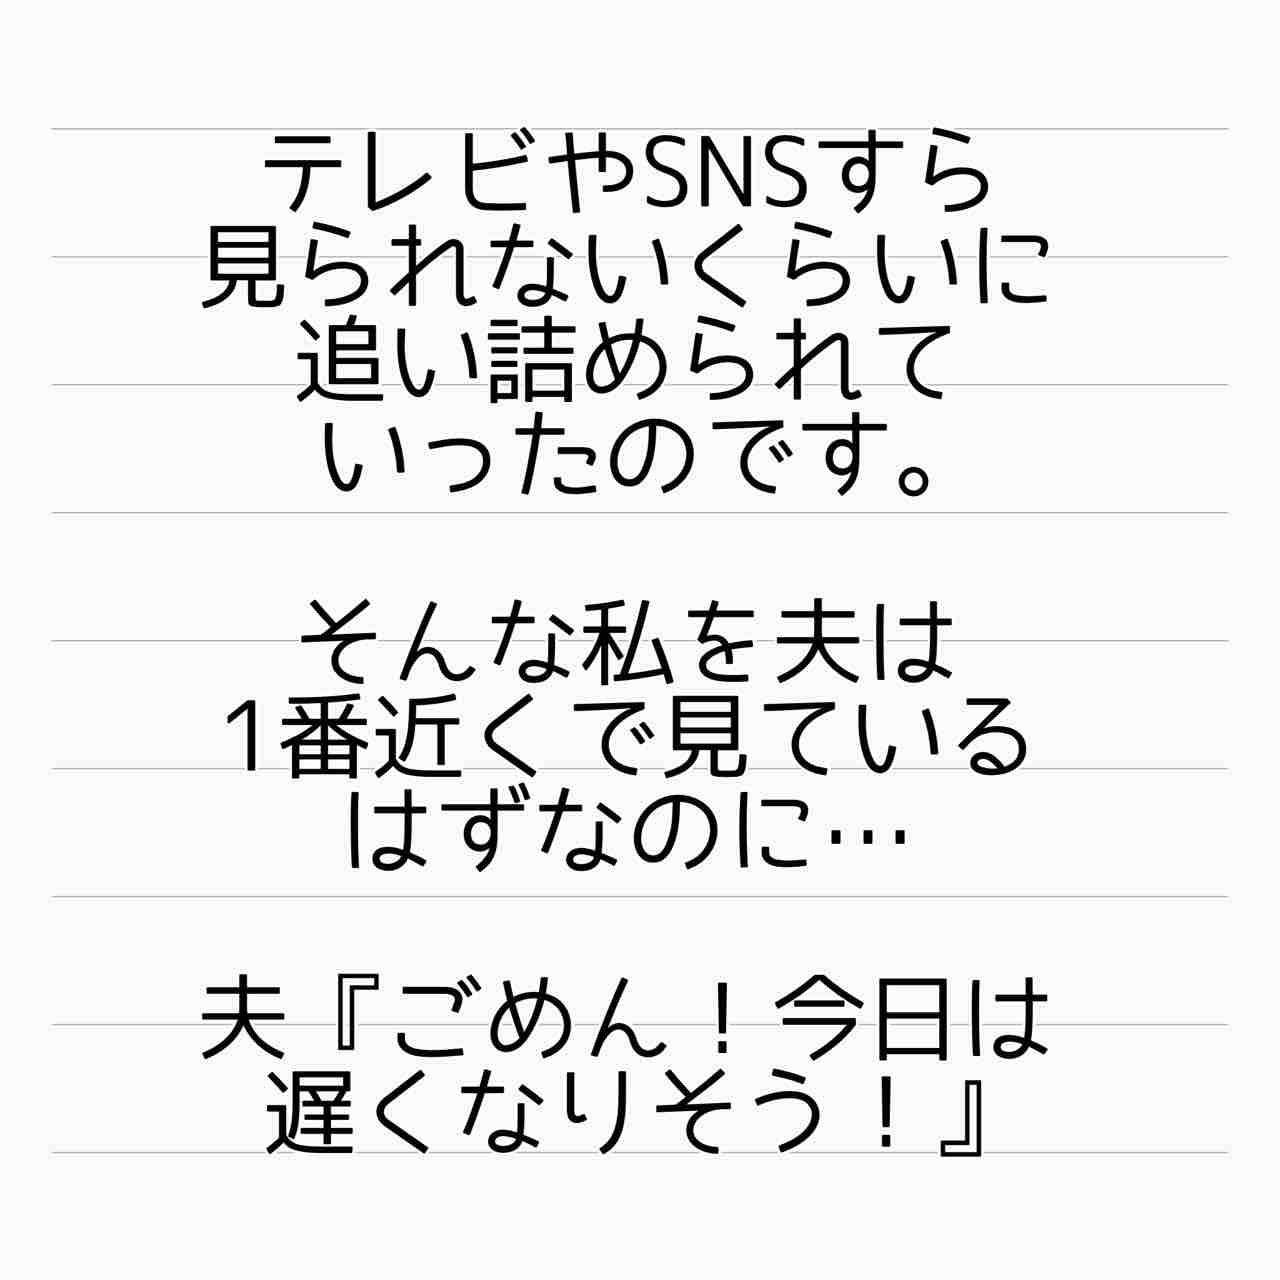 テレビやSNSすら
見られないくらいに
追い詰められて
いったのです。
そんな私を夫は
1番近くで見ている
はずなのに…
夫『ごめん！今日は
遅くなりそう！』